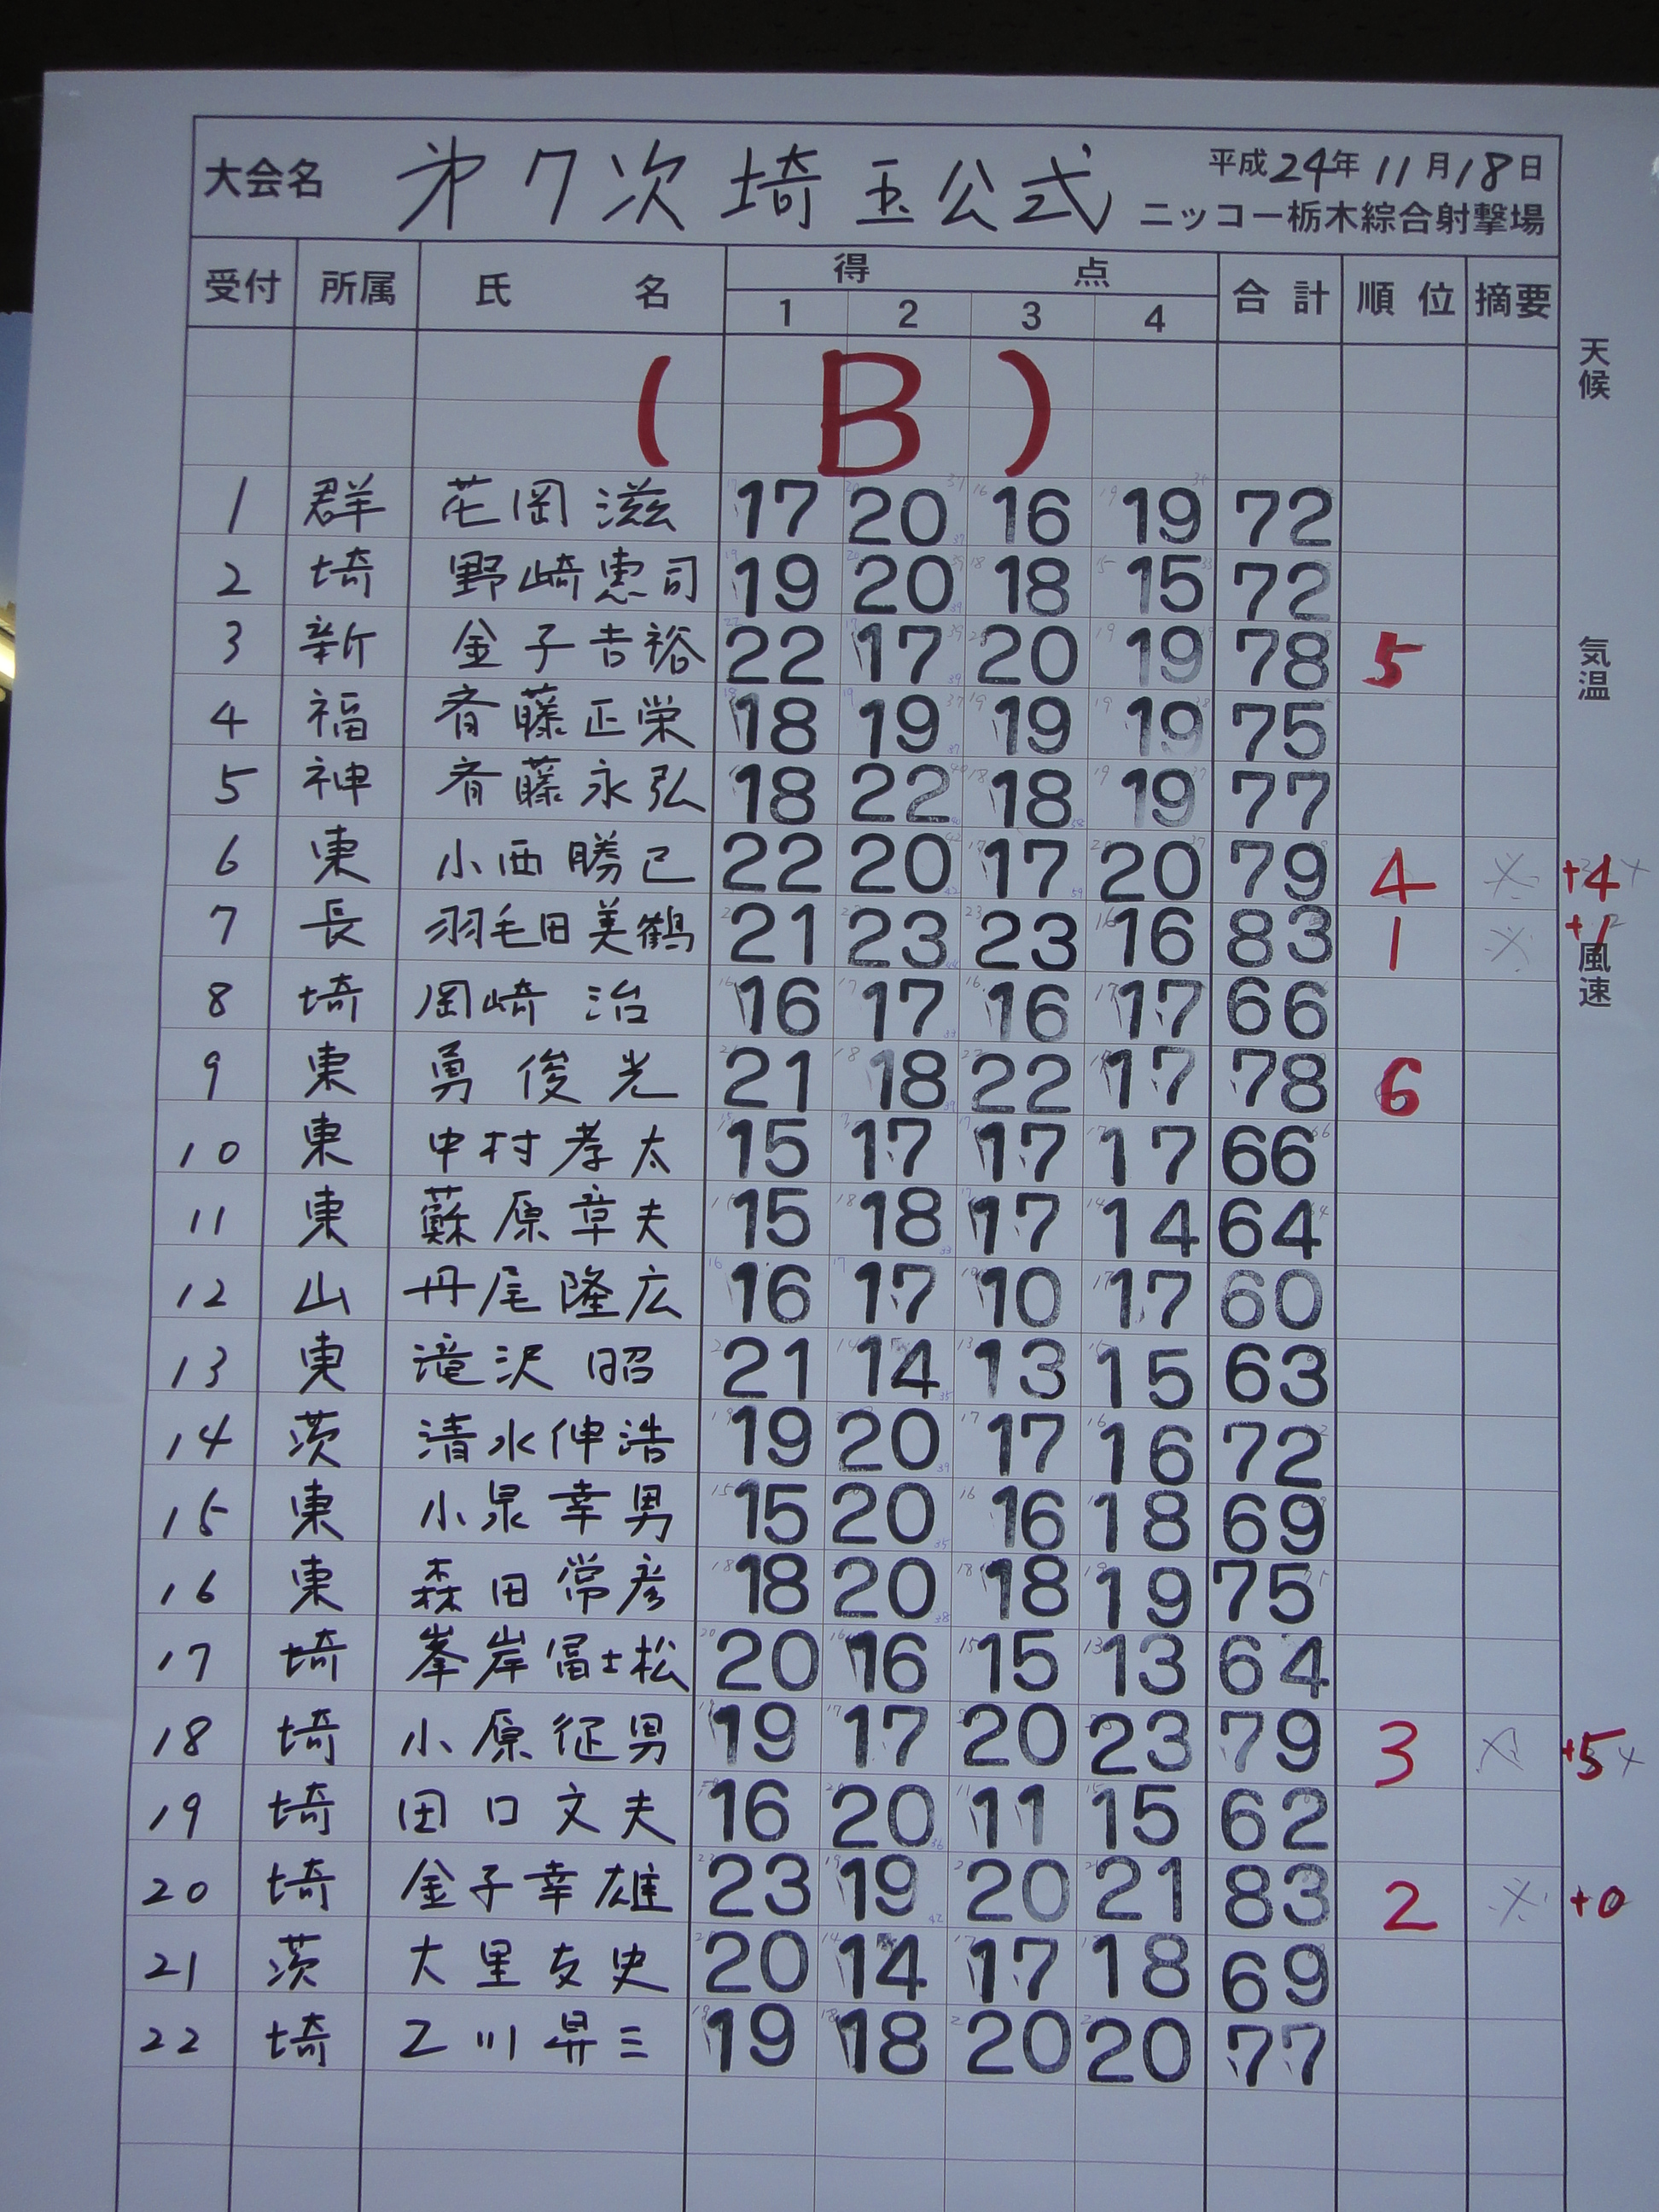 大会名 第7次埼玉公式 平成24年11月18日
ニッコー栃木綜合射撃場
受付 所属 氏名 得点 合計 順位 摘要
1 2 3 4
天候
(B)
1 群 花岡滋 17 20 16 19 72
2 埼 野崎恵司 19 20 18 15 72
3 新 金子吉裕 22 17 20 19 78 5
気温
4 福 斉藤正栄 18 19 19 19 75
5 神 斉藤永弘 18 22 18 19 77
6 東 小西勝己 22 20 17 20 79 4 +4
7 長 羽毛田美鶴 21 23 23 16 83 1 +1
風速
8 埼 岡崎治 16 17 16 17 66
9 東 勇俊光 21 18 22 17 78 6
10 東 中村孝太 15 17 17 17 66
11 東 蘇原章夫 15 18 17 14 64
12 山 丹尾隆広 16 17 10 17 60
13 東 滝沢昭 21 14 13 15 63
14 茨 清水伸浩 19 20 17 16 72
15 東 小泉幸男 15 20 16 18 69
16 東 森田常彦 18 20 18 19 75
17 埼 峯岸冨士松 20 16 15 13 64
18 埼 小原征男 19 17 20 23 79 3 +5
19 埼 田口文夫 16 20 11 15 62
20 埼 金子幸雄 23 19 20 21 83 2 +0
21 茨 大里友史 20 14 17 18 69
22 埼 乙川昇三 19 18 20 20 77